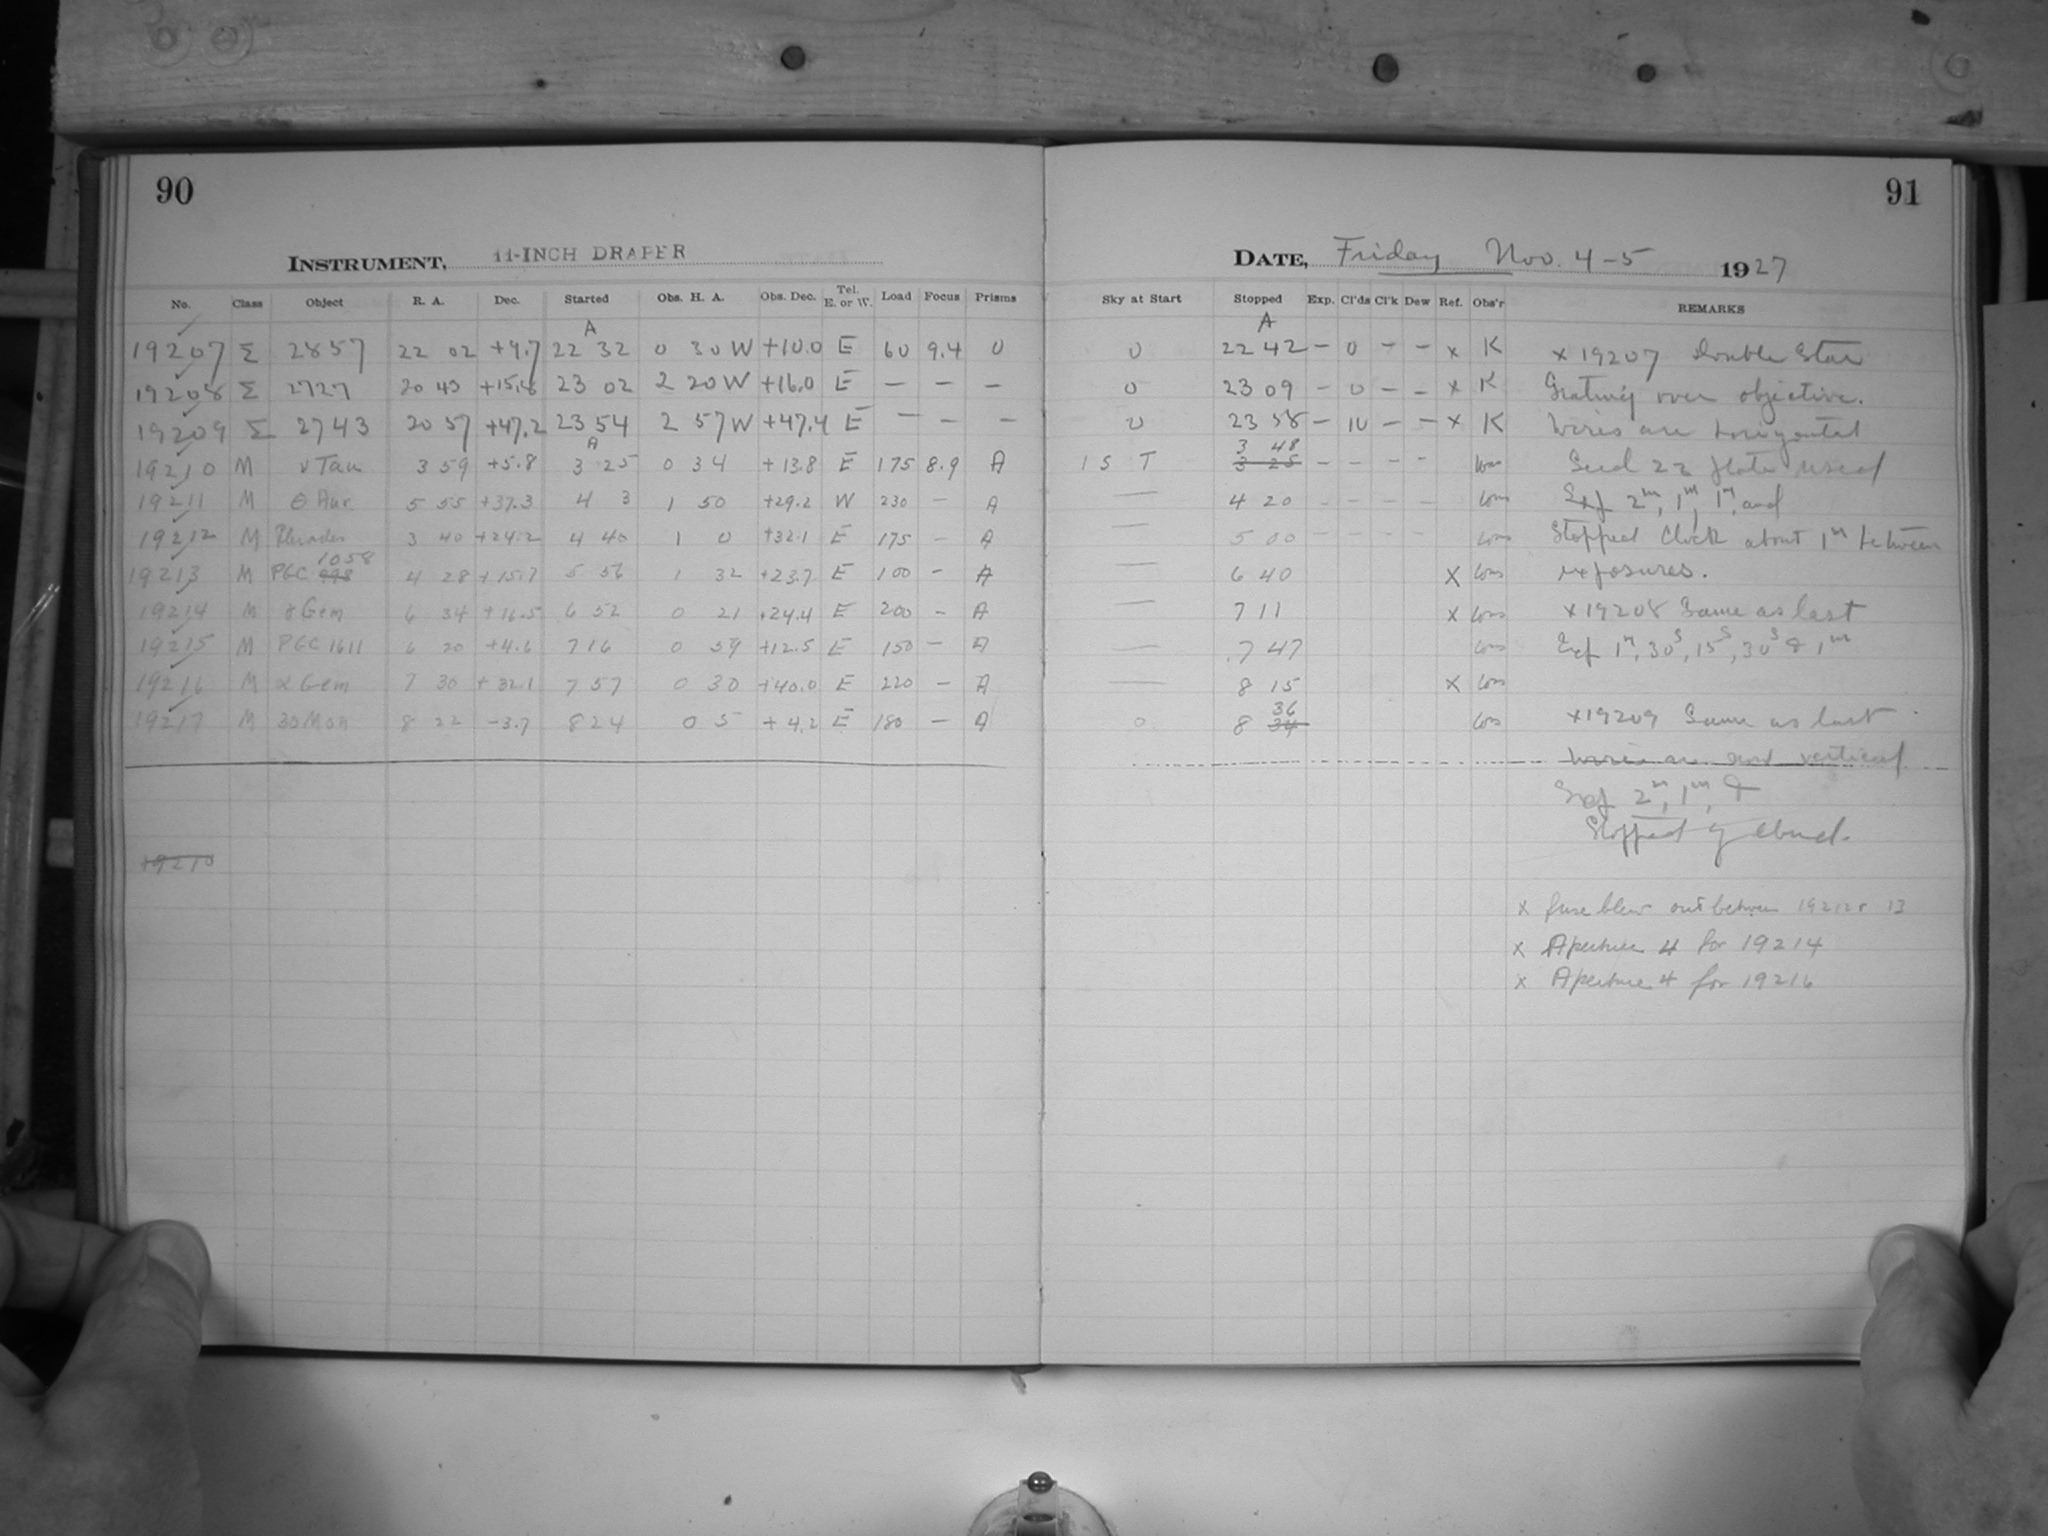 90
INSTRUMENT, 11-INCH DRAPER
No. Class Object R. A. Dec. Started Obs. H. A. Obs. Dec. Tel. E. or W. Load Focus Prisms
A
19207 Σ 2857 22 02 +9.7 22 32 0 30 W +10.0 E 60 9.4 0
19208 Σ 2727 20 43 +15.8 23 02 2 20 W +16.0 E — — —
19209 Σ 2743 20 57 +47.2 23 54 2 57 W +47.4 E — — —
A
19210 M ν Tau 3 59 +5.8 3 25 0 34 +13.8 E 175 8.9 A
19211 M θ Aur 5 55 +37.3 4 3 1 50 +29.2 W 230 — A
19212 M Pleiades 3 40 +24.2 4 40 1 0 +32.1 E 175 — A
1058
19213 M PGC 998 4 28 +15.7 5 56 1 32 +23.7 E 100 — A
19214 M γ Gem 6 34 +16.5 6 52 0 21 +24.4 E 200 — A
19215 M PGC 1611 6 20 +4.6 7 16 0 59 +12.5 E 150 — A
19216 M α Gem 7 30 +32.1 7 57 0 30 +40.0 E 220 — A
19217 M 30 Mon 8 22 -3.7 8 24 0 5 +4.2 E 180 — A
19210
91
DATE, Friday Nov. 4-5 1927
Sky at Start Stopped Exp. Cl'ds Cl'k Dew Ref. Obs'r REMARKS
A
0 22 42 — 0 — — x K x 19207 Double Star
0 23 09 — 0 — — x K Grating over objective.
0 23 58 — 10 — — x K Wires are horizontal
3 48
1 5 T 3 25 — — — — Seed 23 plate used
— 4 20 — — — — Exp 2m, 1m, 1m, and
— 5 00 — — — — Stopped Clock about 1m between
— 6 40 X exposures.
— 7 11 x x 19208 Same as last
— 7 47 Exp 1m, 30s, 15s, 30s & 1m
— 8 15 X
36
0 8 34 x 19209 Same as last
Wires are and vertical
Exp 2m, 1m, &
Stopped by cloud.
x fuse blew out between 19212 & 13
x Aperture 4 for 19214
x Aperture 4 for 19216